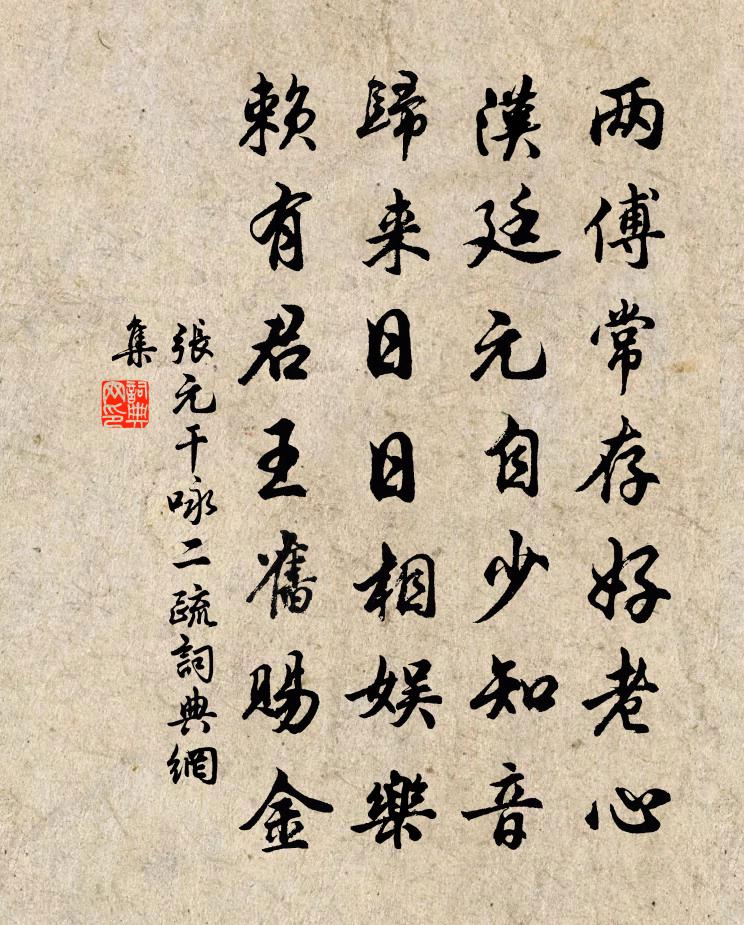 两傅常存好老心
漢廷元自少知音
歸来日日相娱樂
賴有君王舊賜金
張元干咏二疏詞典網
集
詞典
网印